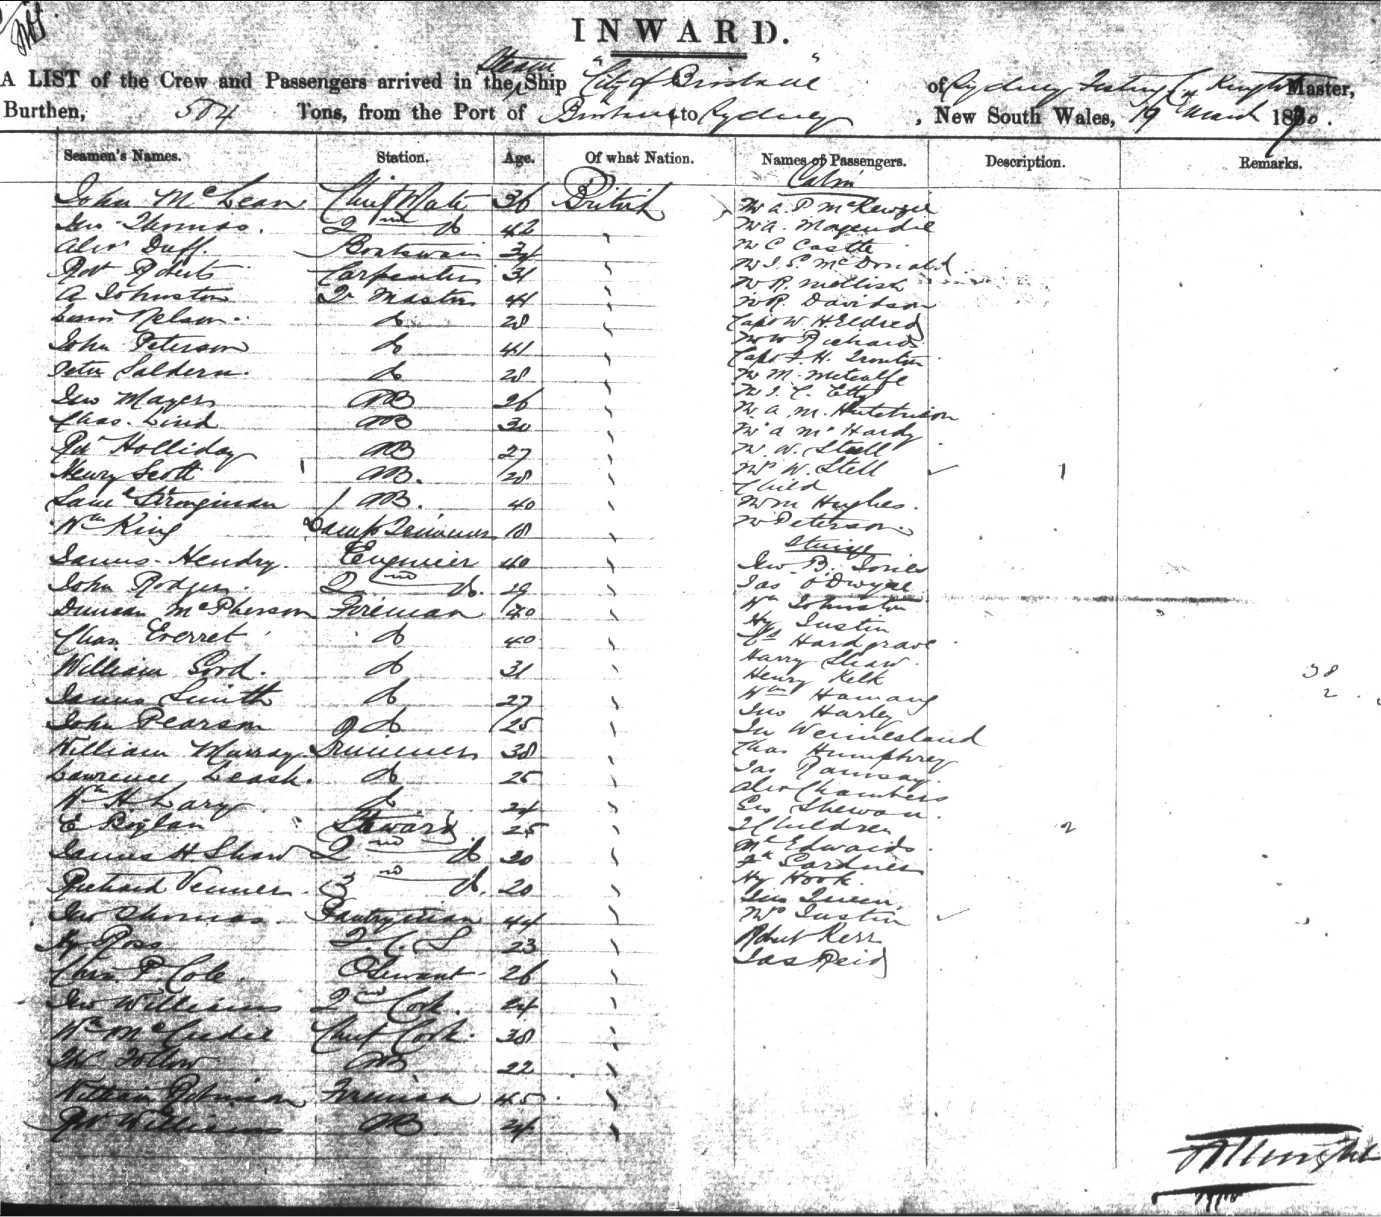 INWARD.
A LIST of the Crew and Passengers arrived in the Steam Ship "City of Brisbane" of Sydney Master,
Burthen, 504 Tons, from the Port of Brisbane to Sydney, New South Wales, 19 March 1870.
Seamen's Names. Station. Age. Of what Nation. Names of Passengers. Description. Remarks.
Cabin
John McLean Chief Mate 36 British Mr A. P McKenzie
Geo Thomas. 2nd do 42 Mr A.
Alexr Duff. Boatswain 34 Mr C Castle
Robt Roberts Carpenter 31 Mr J. S McDonald
A Johnston Qr Master 44 Mr R. Mellish
Nelson. do 28 Mr R. Davidson
John Peterson do 41 Capt W. H Eldred
Mr W Richards
Peter Saldern. do 28 Capt F. H. Trouton
Geo Mayers AB 26 Mr M. Metcalfe
Chas. Lind AB 30 Mr J. C. Etty
Holliday AB 27 Mr A. M. Hutchinson
Henry Scott AB. 28 Mr A McHardy
Saml Strongman AB. 40 Mr W. Stell
Wm King Lamp Trimmer 18 Mrs W. Stell 1
Child
James Hendry. Engineer 40 Mr M Hughes.
John Rodger 2nd do. 29 Mr Peterson.
Steerage
Duncan McPherson Fireman 40 Geo B. Jones
Chas Everret do 40 Jas O'Dwyer
William Lord. do 31 Wm Johnston
James Smith do 27 Hy Justin
John Pearson do 25 Hardgrave
William Murray Trimmer 38 Harry Shaw.
Lawrence Leask. do 25 Henry Kelk 38
Wm H Lary do 24 Wm 2
E Riglan Steward 25 Jno Harley
James H Shaw 2nd do 30
Richard Venner. 3rd do. 20 Chas Humphrey
Geo Thomas. Pantryman 44 Jas Ramsay.
Hy Ross 23 Alex Chambers
Chas. P Cole 26 Geo Shewan.
Geo Williams 2nd Cook. 24 2 Children 2
Wm Chief Cook. 38 Mr Edwards.
AB 22 Fk Gardner
William Robinson Fireman 45 Hy Hook.
Robt Williams AB 24 Jno Queen.
Mrs Justin
Robert Kerr
Jas Reid